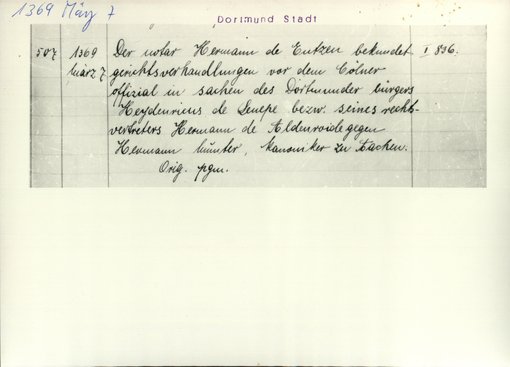 1369 März 7
Dortmund Stadt
507 1369 Der notar Hermann de Entzen bekundet I 836.
März 7 gerichtsverhandlungen vor dem Cölner
offizial in sachen des Dortmunder bürgers
Heydenricus de Senepe bezw. seines rechts-
vertreters Hermann de Aldenroide gegen
Hermann münter, kanoniker zu Aachen.
Orig. pgm.